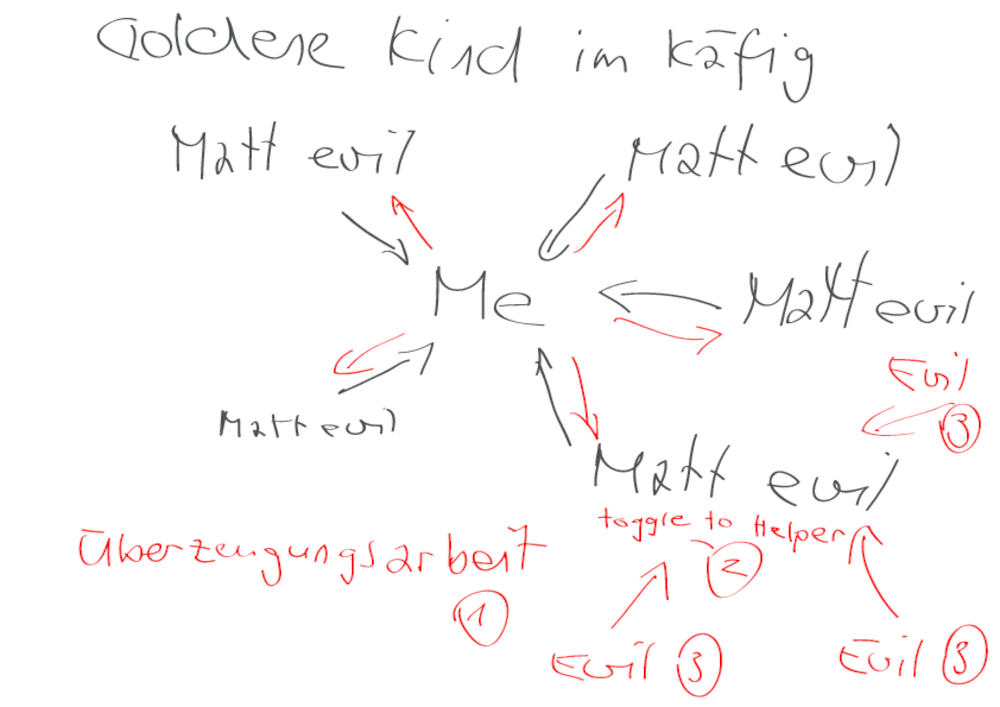 Goldene Kind im Käfig
Matt evil
Matt evil
Me
Matt evil
Matt evil
Evil
3
Matt evil
toggle to Helper
2
Überzeugungsarbeit
1
Evil 3
Evil 3